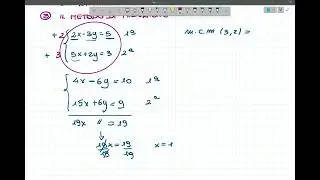 ③ IL METODO DI RIDUZIONE
+2 { 2x - 3y = 5 1ª
+3 { 5x + 2y = 3 2ª
m.c.m (3,2) =
{ 4x - 6y = 10 1ª
{ 15x + 6y = 9 2ª
19x // = 19
↓
19x/19 = 19/19 x = 1